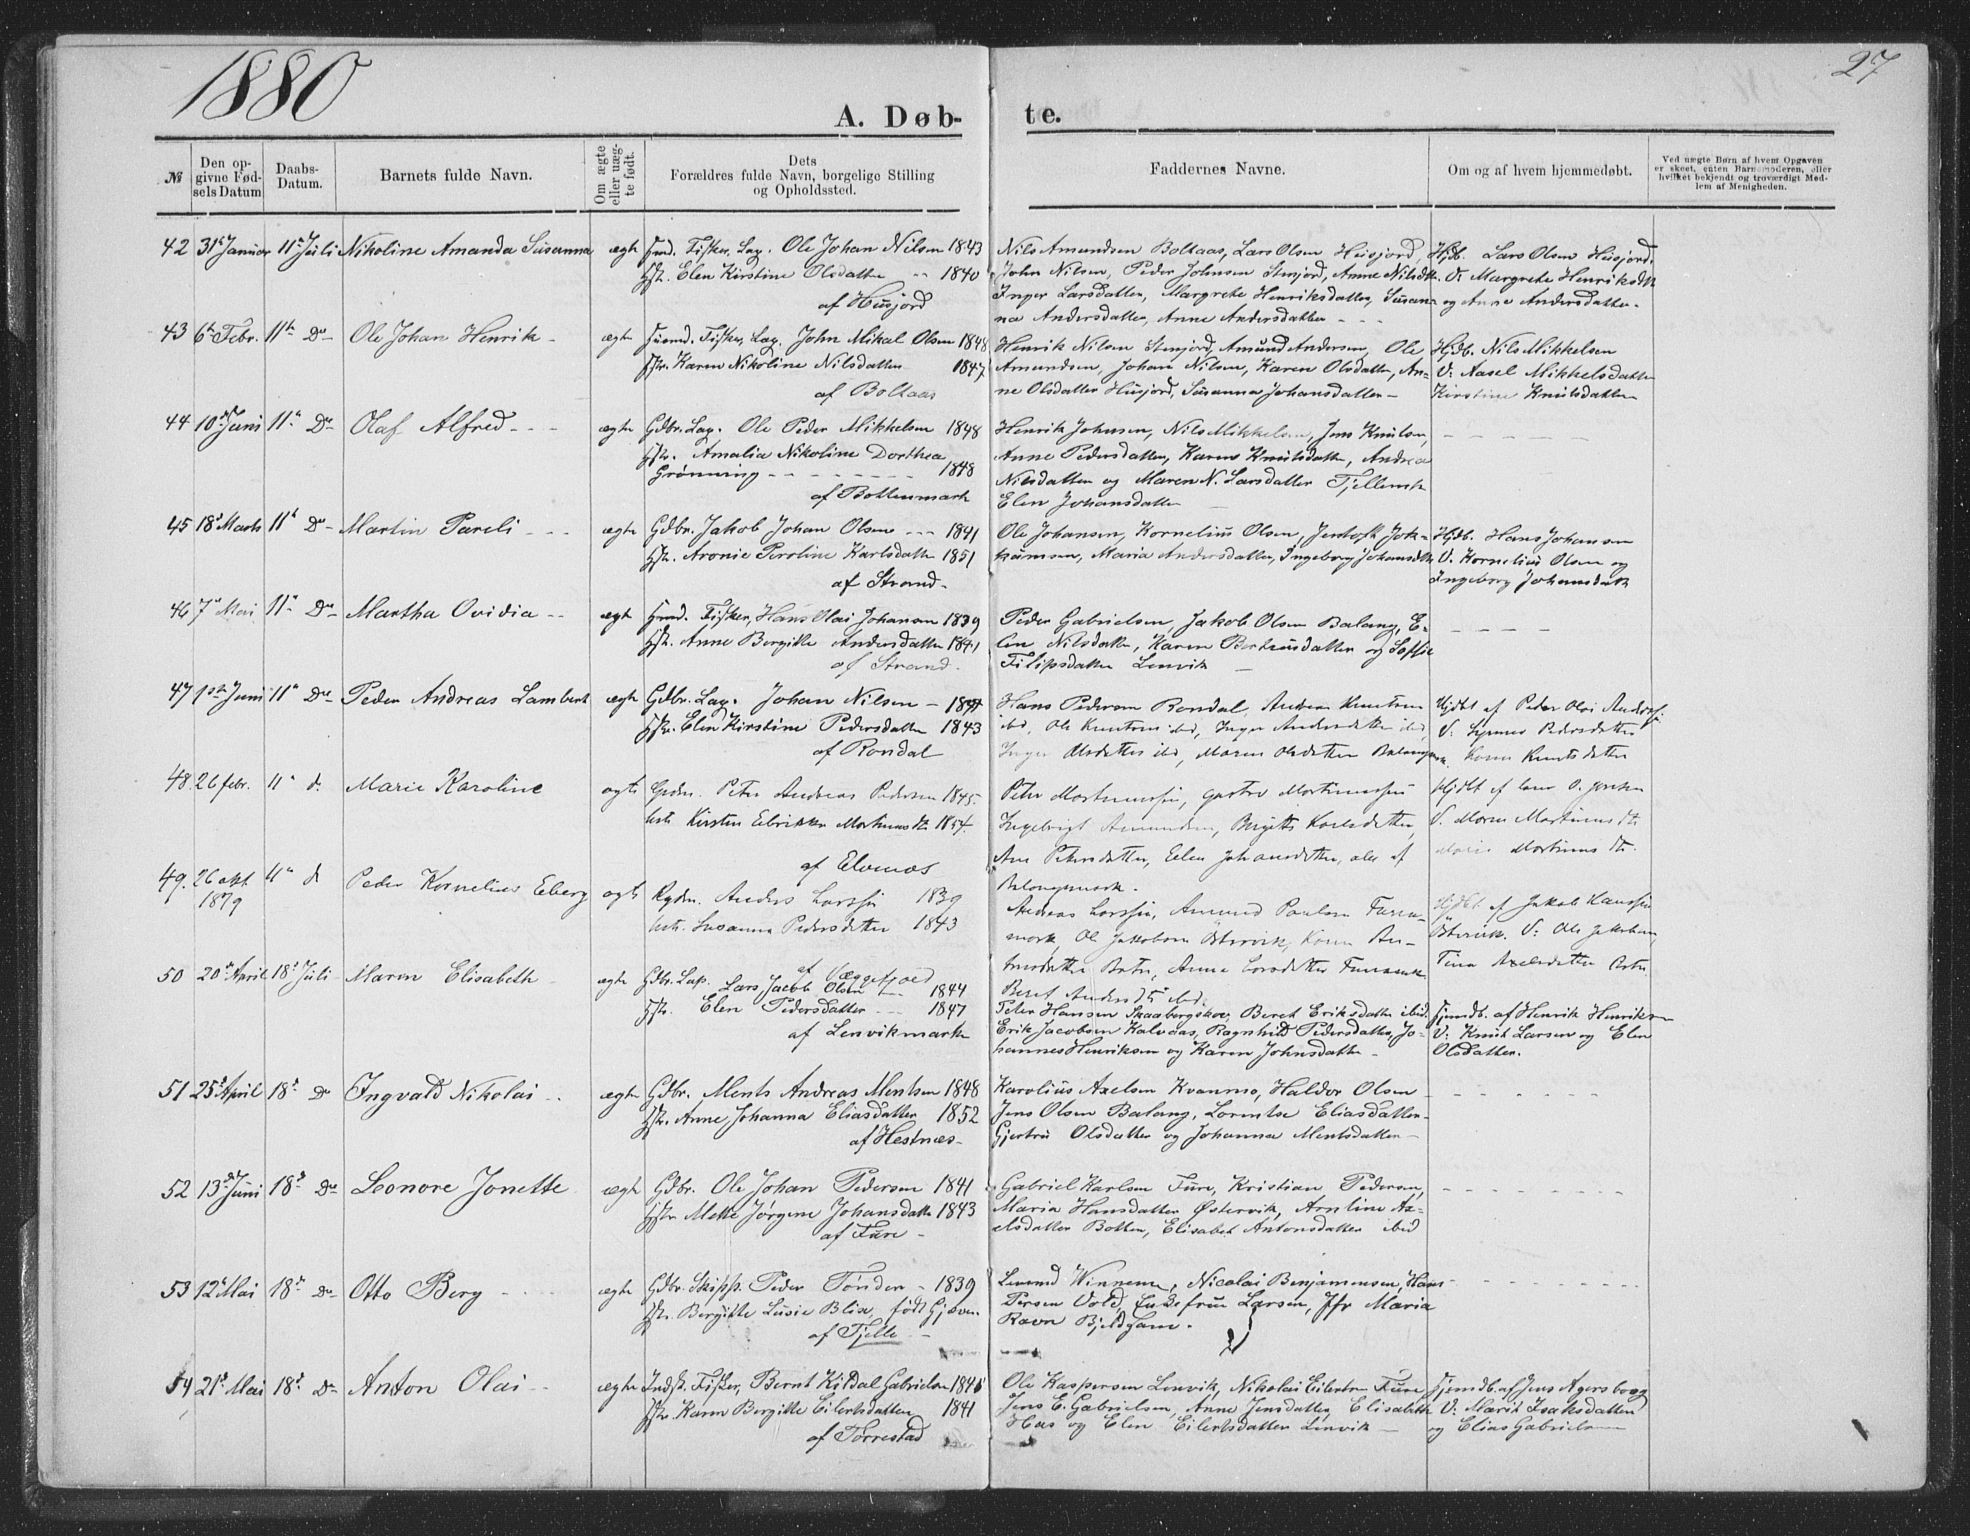 1880
27
A. Døb-
te.
№
Den op-
givne Fød-
sels Datum
Daabs-
Datum.
Barnets fulde Navn.
Om ægte
eller uæg-
te født.
Dets
Forældres fulde Navn, borgelige Stilling
og Opholdssted.
Faddernes Navne.
Om og af hvem hjemmedøbt.
Ved uægte Børn af hvem Opgaven
er skeet, enten Barnemoderen, eller
hvilket bekjendt og troværdigt Med-
lem af Menigheden.
42 31 Januar 11 Juli Nikoline Amanda Susanna ægte Fisker, Lap. Ole Johan Nilsen 1843
Elen Kirstine Olsdatter 1840
af Husjord
Nils Amundsen Boltaas, Lars Olsen Husjord,
John Nilsen, Peder Johnsen Stenjord, Anne Nilsdtr.
Inger Larsdatter, Margrete Henriksdatter, Susan-
na Andersdatter, Anne Andersdatter
Hjdb. Lars Olsen Husjord.
V: Margrete Henriksdtr
og Anne Andersdatter
43 6te Febr. 11te Do Ole Johan Henrik ægte Fisker, Lap. John Mikal Olsen 1848
Karen Nikoline Nilsdatter 1847
af Boltaas
Henrik Nilsen Stenjord, Amund Andersen, Ole
Amundsen, Johan Nilsen, Karen Olsdatter, An-
ne Olsdatter Husjord, Susanna Johansdatter
Hjdb. Nils Mikkelsen
V: Aasel Mikkelsdatter
Kirstine Knutsdatter
44 10 Juni 11 Do Olaf Alfred ægte Gdbr. Lap. Ole Peder Mikkelsen 1848
Amalia Nikoline Dorthea
Grønning 1848
af Bottenmark
Henrik Johnsen, Nils Mikkelsen, Jens Knutsen,
Anne Pedersdatter, Karen Knutsdatter, Andrea
Nilsdatter og Maren N. Larsdatter
Elen Johansdatter
45 18 Marts 11 Do Martin Pareli ægte Gdbr. Jakob Johan Olsen 1841
Aronie Peroline Karlsdatter 1851
af Strand
Ole Johansen, Kornelius Olsen, Jentoft Jok-
kumsen, Maria Andersdatter, Ingeborg Johansdtr
Hjdb. Hans Johansen
V. Kornelius Olsen og
Ingeborg Johansdatter
46 7 Mai 11 Do Martha Ovidia ægte Fisker, Hans Olai Johansen 1839
Anne Bergitte Andersdatter 1841
af Strand.
Peder Gabrielsen, Jakob Olsen Balang, E-
len Nilsdatter, Karen Bertheusdatter og Soffie
Filipsdatter Lenvik
47 1ste Juni 11 Do Peder Andreas Lambert ægte Gdbr. Lap. Johan Nilsen
Elen Kirstine Pedersdatter 1843
af Rondal
Hans Pedersen Rondal, Andreas Knutsen
ibd, Ole Knutsen ibd, Inger Andersdatter ibd,
Inger Olsdatter ibd, Maren Olsdatter
Hjdbt af Peder Olai
V: Pedersdatter
Karen Knutsdatter
48. 26 febr. 11 d. Marie Karoline ægte Peter Andreas Pedersen 1845
Kirsten Mortensdtr 1854.
af Elvenæs
Peter
Ingebrigt Amundsen, Birgitte Karlsdatter,
Ane Petersdatter, Elen Johansdatter, alle af
Balangsmark.
Hjdbt af
V. Maren
49. 26 okt. 11 d
1879
Peder Kornelius Eberg ægte Anders 1839
Susanna Pedersdatter 1843
af Læggefjord
Andreas Amund Paulsen
mark, Ole Jakobsen Østervik, Karen
Anna Larsdatter
Beret Andersdtr ibd.
Hjdbt af Jakob
Østervik. V: Ole Jakobsen,
Tina Axelsdatter
50 20 April 18 Juli Maren Elisabeth ægte Gdbr. Lap. Lars Jacob Olsen 1844
Elen Pedersdatter 1847
af Lenvikmark
Peter Hansen Skaabergskov, Beret Eriksdatter ibid.
Erik Jacobsen Kalvaas, Ragnhild Pedersdatter, Jo-
hannes Henriksen og Karen Johnsdatter
Hjemdb. af Henrik Henriksen
V: Knut Larsen og Elen
Olsdatter.
51 25 April 18 Do Ingvald Nikolai ægte Gdbr. Ments Andreas Mentsen 1848
Anne Johanna Eliasdatter 1852
af Hestnæs
Karolius Axelsen Kvanmo, Haldor Olsen
Jens Olsen Balang, Lorentse Eliasdatter
Gjertru Olsdatter og Johanna Mentsdatter
52 13 Juni 18 Do Leonore Jonette ægte Gdbr. Ole Johan Pedersen 1841
Mette Jørgine Johansdatter 1843
af Fure
Gabriel Karlsen Fure, Kristian Pedersen,
Maria Hansdatter Østervik, Arntine Ax-
elsdatter Botten, Elisabet Antonsdatter ibid
53 12 Mai 18 Do Otto Berg ægte Gdbr. Skipp. Peder Tønder 1839
Bergitte Lusie Blix, født Gjæver
af Fjelle
Winnem, Nicolai Benjaminsen, Hans
Persen Vold, Enkefrue Larsen, Jfr Maria
Ravn Bjeldham.
54 21 Mai 18 Do Anton Olai ægte Indst. Fisker, Bernt Kildal Gabrielsen
Karen Bergitte Eilertsdatter 1841
af Torrestad
Ole Kaspersen Lenvik, Nikolai Eilertsen Fure
Jens E. Gabrielsen, Anne Jensdatter, Elisabeth
Has og Elen Eilertsdatter Lenvik
Hjemdb. af Jens Agersborg
V: Marit Isaksdatter
og Elias Gabrielsen